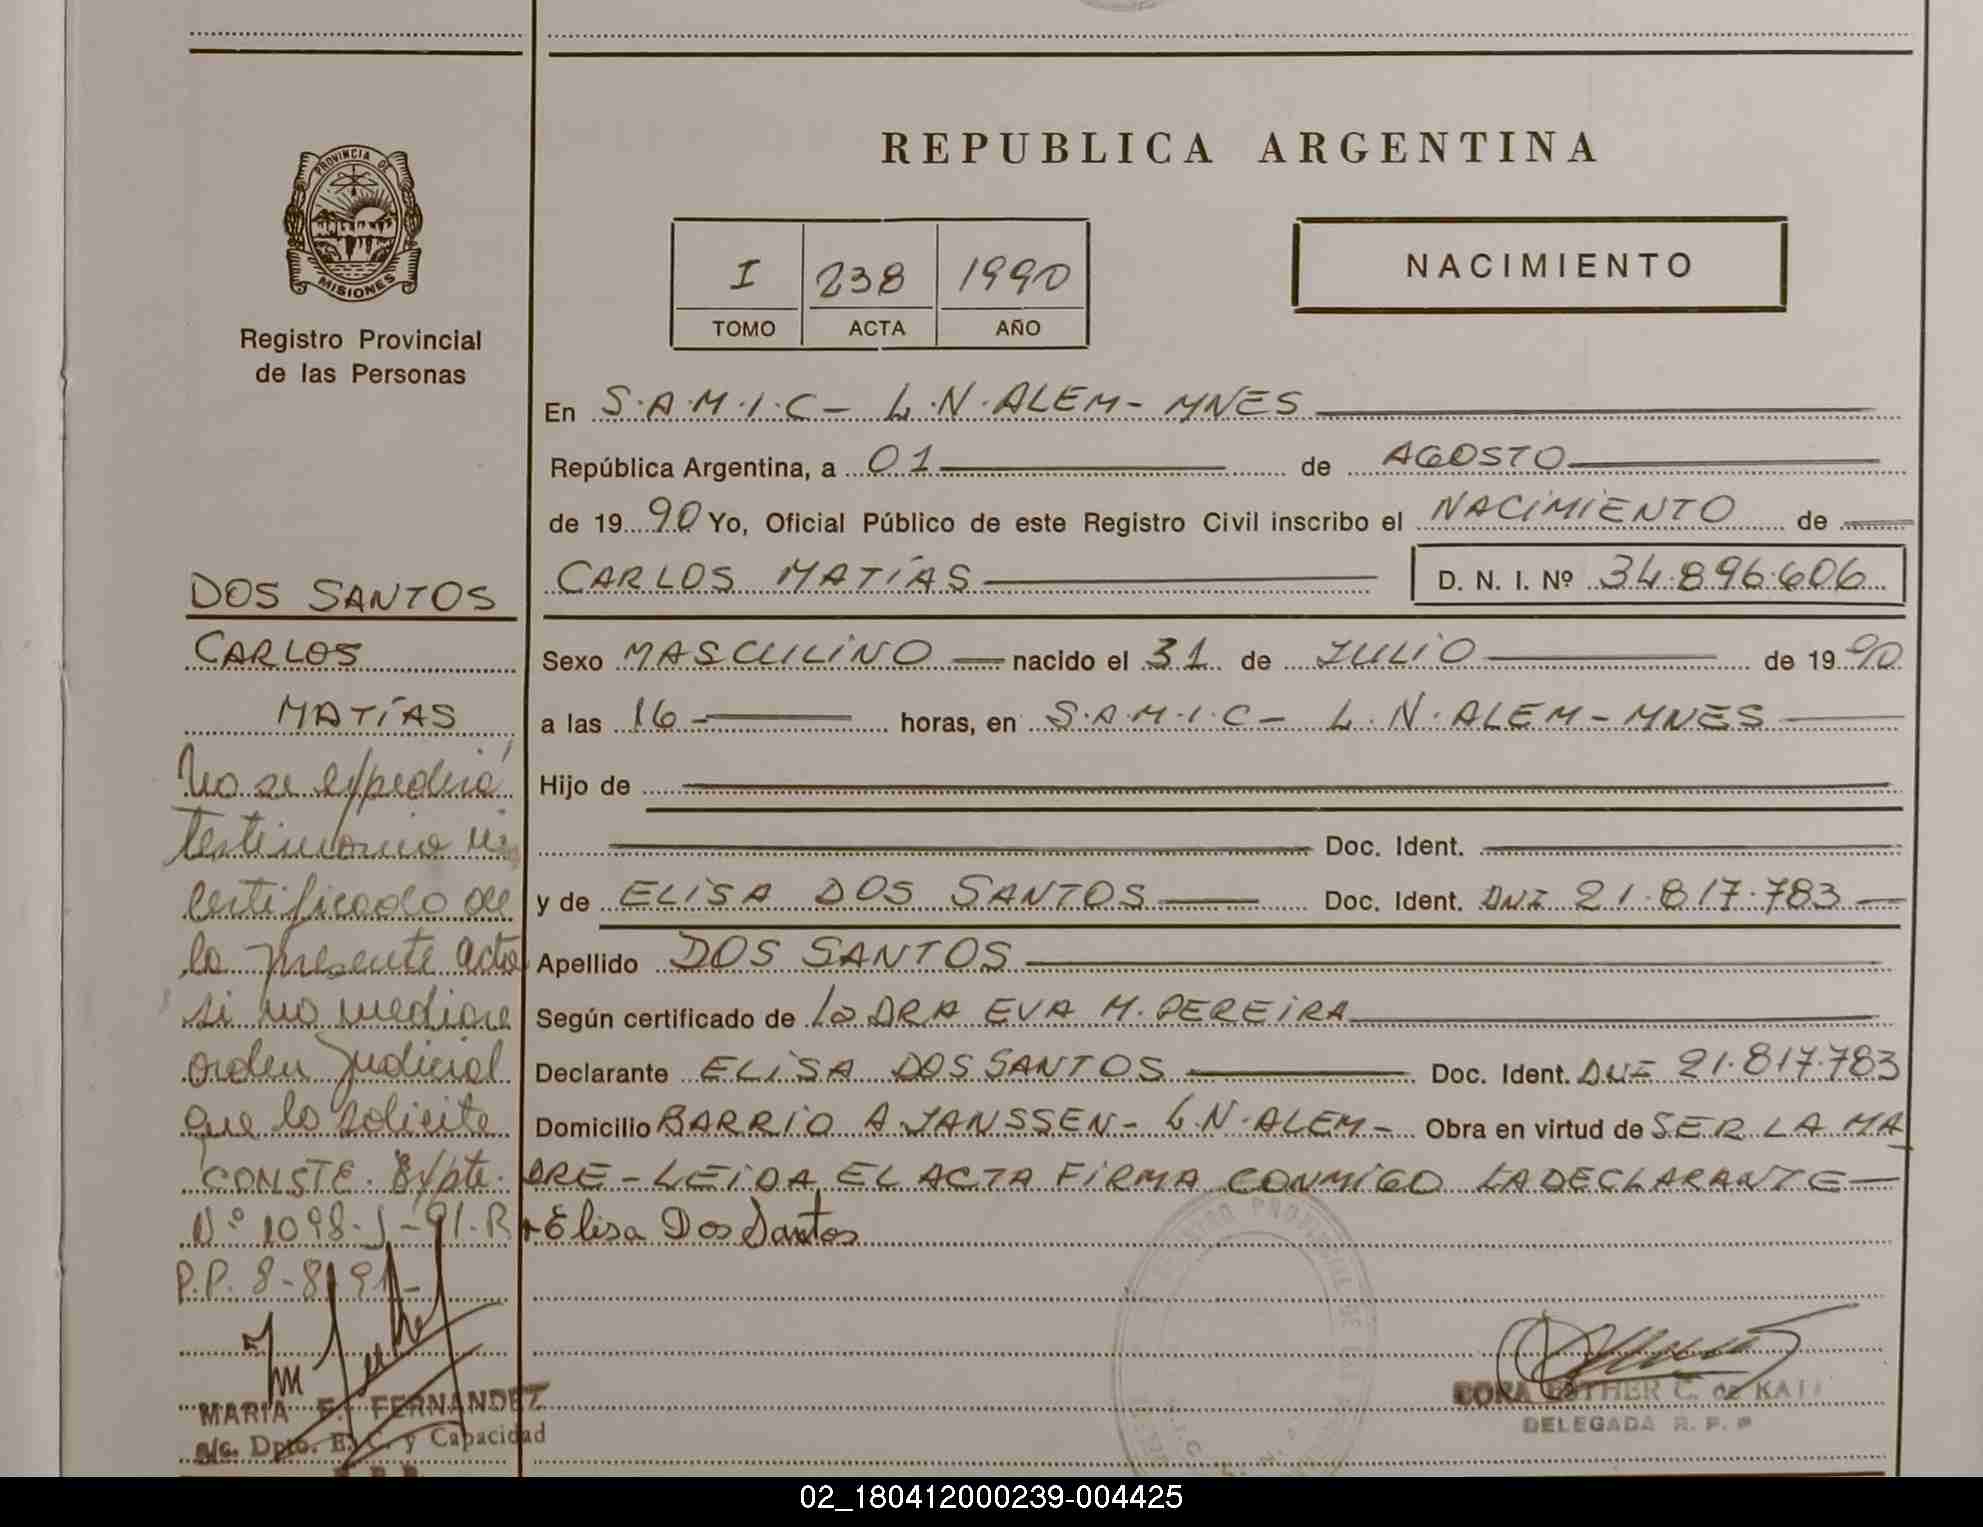 REPUBLICA ARGENTINA
PROVINCIA DE
MISIONES
Registro Provincial
de las Personas
I 238 1990
TOMO ACTA AÑO
NACIMIENTO
En S.A.M.I.C - L.N.ALEM - MNES
República Argentina, a 01 de AGOSTO
de 19 90 Yo, Oficial Público de este Registro Civil inscribo el NACIMIENTO de
CARLOS MATÍAS D. N. I. Nº 34.896.606
Sexo MASCULINO nacido el 31 de JULIO de 19 90
a las 16 horas, en S.A.M.I.C - L.N.ALEM - MNES
Hijo de
Doc. Ident.
y de ELISA DOS SANTOS Doc. Ident. DNI 21.817.783
Apellido DOS SANTOS
Según certificado de la DRA EVA M. PEREIRA
Declarante ELISA DOS SANTOS Doc. Ident. DNI 21.817.783
Domicilio BARRIO A JANSSEN - L.N.ALEM - Obra en virtud de SER LA MA
DRE - LEIDA EL ACTA FIRMA CONMIGO LA DECLARANTE -
Elisa Dos Santos
DOS SANTOS
CARLOS
MATÍAS
No se expedirá
testimonio ni
certificado de
la presente acta
si no mediare
orden judicial
que lo solicite
CONSTE. Expte.
Nº 1098-J-91-R
P.P. 8-8-91-
MARIA E. FERNANDEZ
a/c. Dpto. E. C. y Capacidad
CORA ESTHER C. de
DELEGADA R. P. P
02_180412000239-004425